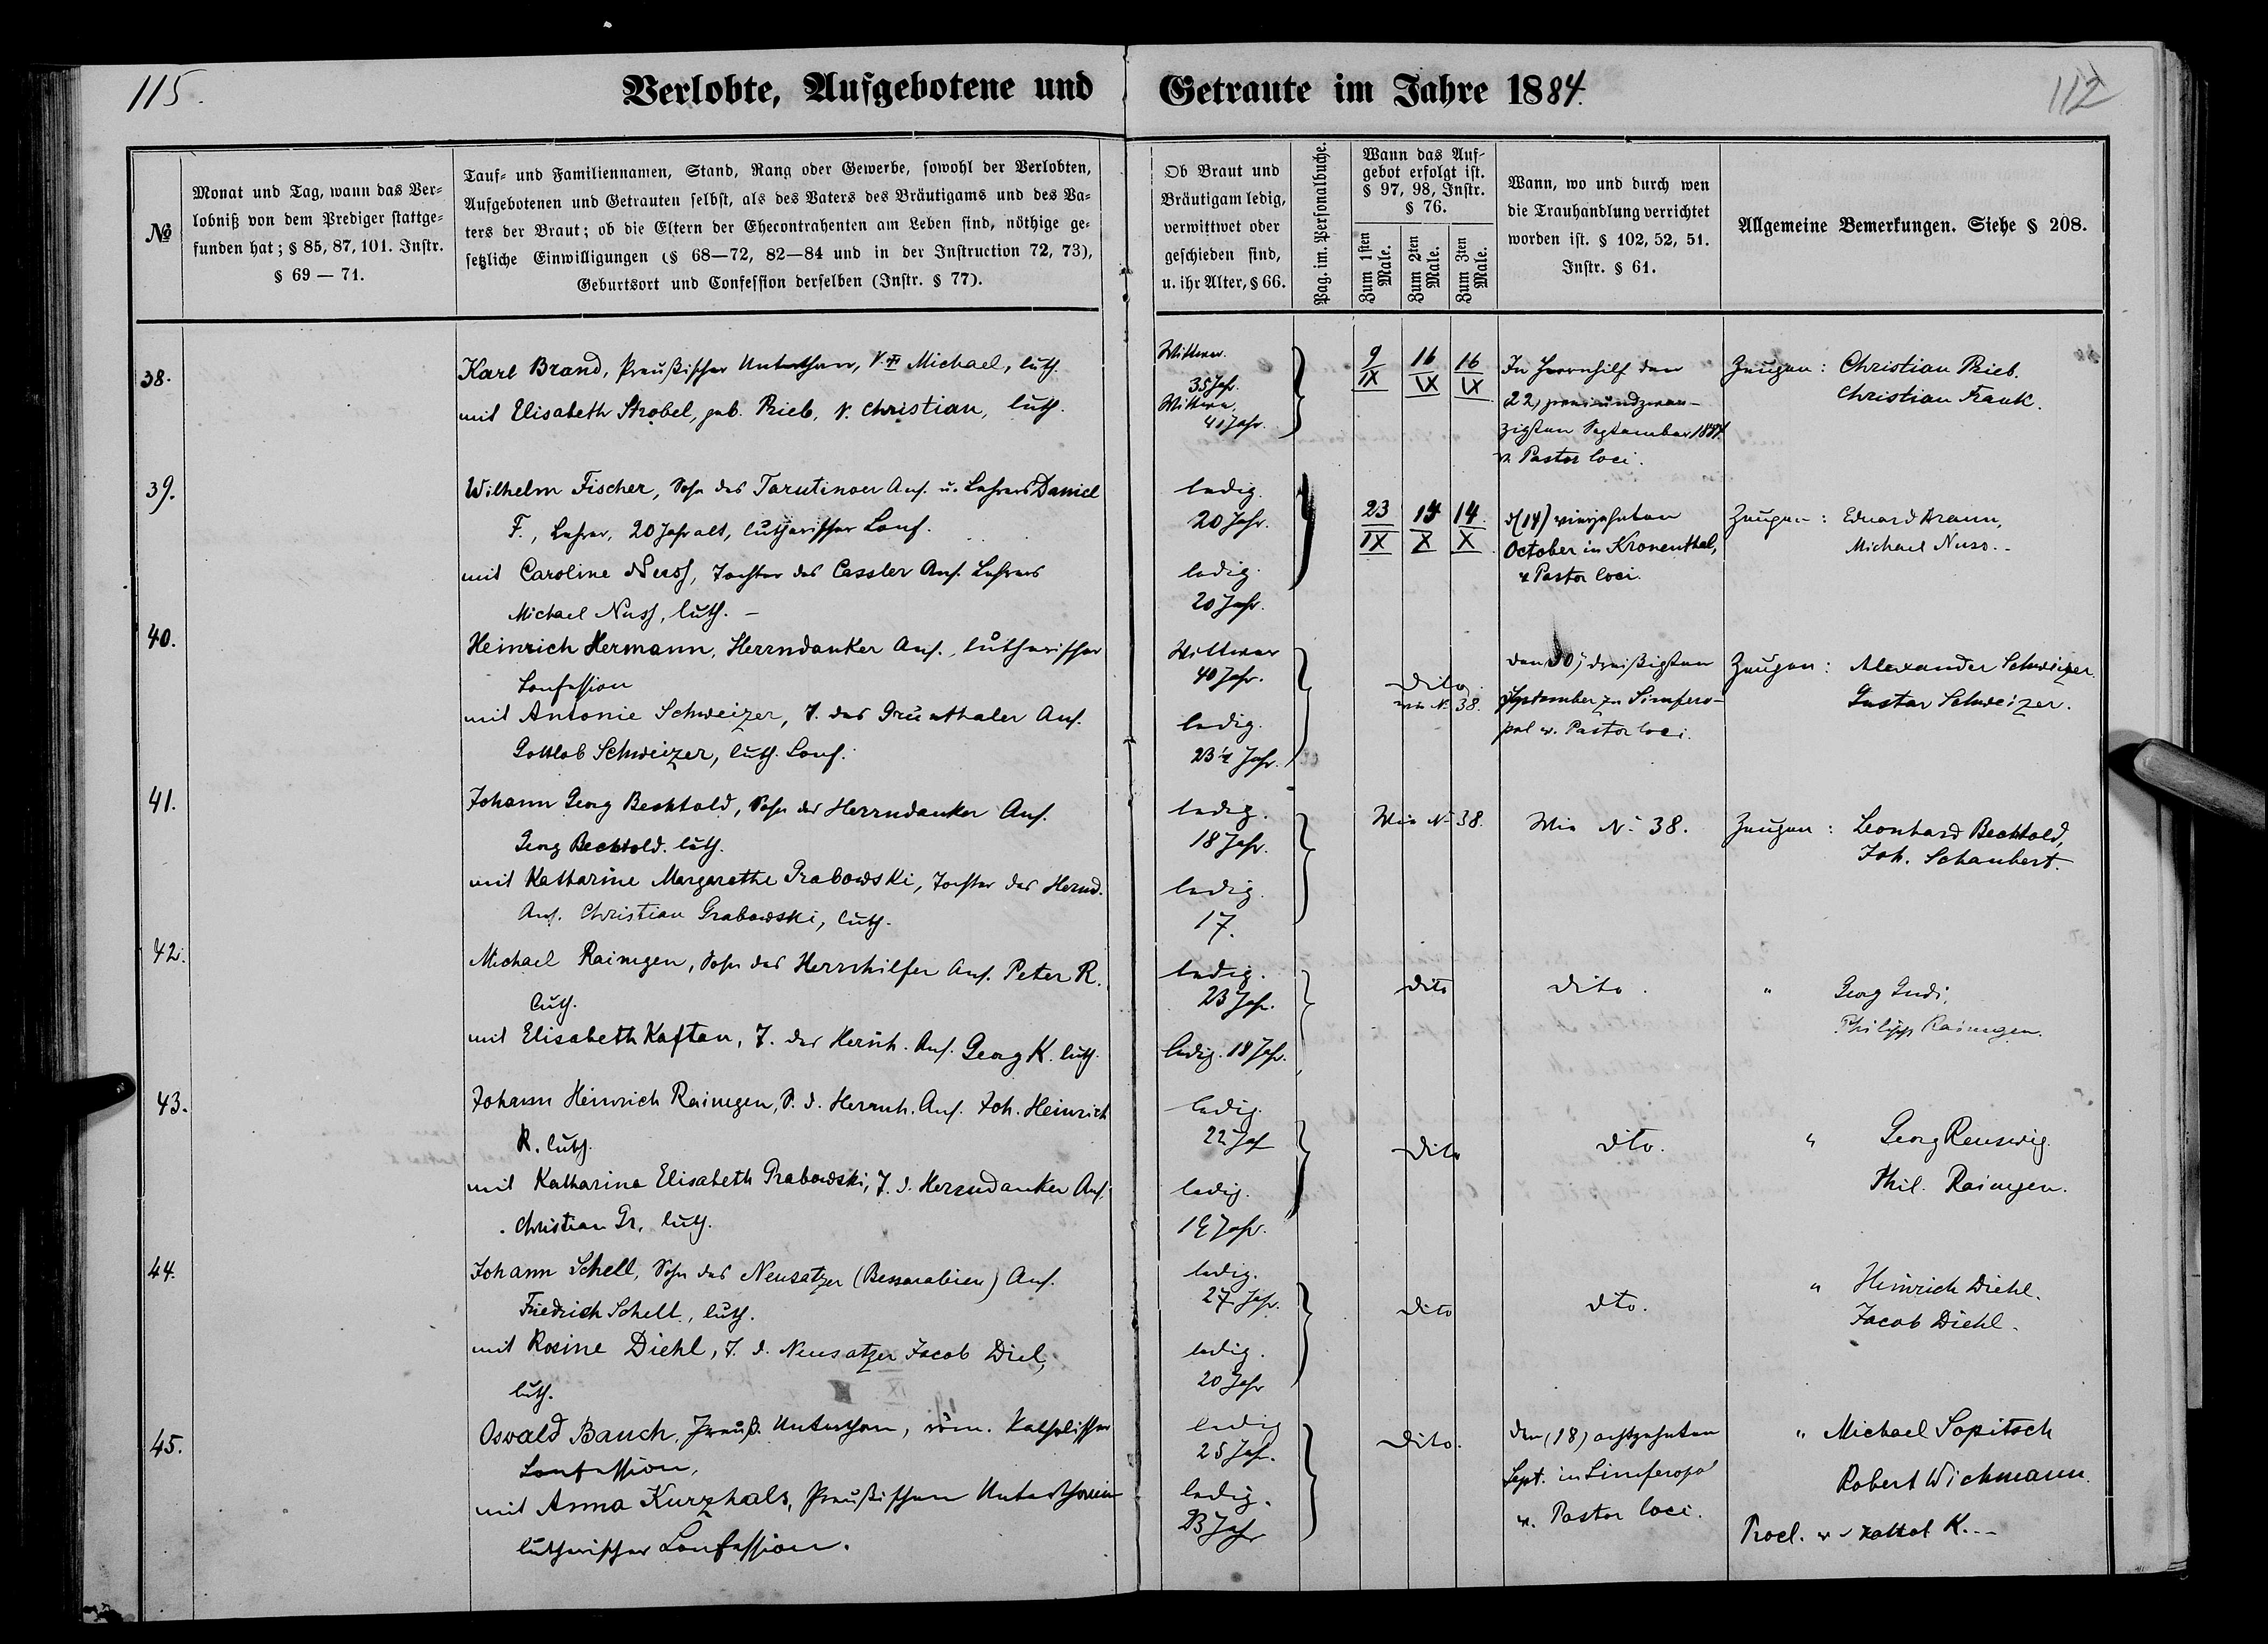 115.
Verlobte, Aufgebotene und Getraute im Jahre 1884.
112
№
Monat und Tag, wann das Ver-
lobniß von dem Prediger stattge-
funden hat; § 85, 87, 101. Instr.
§ 69 — 71.
Tauf- und Familiennamen, Stand, Rang oder Gewerbe, sowohl der Verlobten,
Aufgebotenen und Getrauten selbst, als des Vaters des Bräutigams und des Va-
ters der Braut; ob die Eltern der Ehecontrahenten am Leben sind, nöthige ge-
setzliche Einwilligungen (§ 68—72, 82—84 und in der Instruction 72, 73),
Geburtsort und Confession derselben (Instr. § 77).
Ob Braut und
Bräutigam ledig,
verwittwet oder
geschieden sind,
u. ihr Alter, § 66.
Pag. im. Personalbuche.
Wann das Auf-
gebot erfolgt ist.
§ 97, 98, Instr.
§ 76.
Zum 1sten Male.
Zum 2ten Male.
Zum 3ten Male.
Wann, wo und durch wen
die Trauhandlung verrichtet
worden ist. § 102, 52, 51.
Instr. § 61.
Allgemeine Bemerkungen. Siehe § 208.
38.
Karl Brand, Preußischer Unterthan, Michael, luth.
mit Elisabeth Strobel, geb. Prieb, v. Christian, luth.
Wittwer.
35 Jahr.
Wittwe
41 Jahr.
9 16 16
IX IX IX
In Herrnhilf den
22, zweiundzwan-
zigsten September 1884
v. Pastor loci.
Zeugen: Christian Prieb.
Christian Frank.
39.
Wilhelm Fischer, Sohn des Tarutinoer Ans. u. Lehrers Daniel
F., Lehrer, 20 Jahr alt, lutherischer Conf.
mit Caroline Nuss, Tochter des Cassler Ans. Lehrers
Michael Nuss, luth. —
ledig.
20 Jahr.
ledig.
20 Jahr.
23 14 14
IX X X
d (14) vierzehnten
October in Kronenthal,
v Pastor loci.
Zeugen: Eduard Braun,
Michael Nuss. -
40.
Heinrich Hermann, Herrndanker Ans., lutherischer
Confession
mit Antonie Schweizer, T. des Grünthaler Ans.
Gottlob Schweizer, luth. Conf.
Wittwer
40 Jahr.
ledig.
23 1/2 Jahr.
Dito
wie № 38.
den 30, dreißigsten
September zu Simfero-
pol v. Pastor loci.
Zeugen: Alexander Schweizer.
Gustav Schweizer.
41.
Johann Georg Bechtold, Sohn des Herrndanker Ans.
Georg Bechtold. luth.
mit Katharine Margarethe Grabowski, Tochter des Hernd.
Ans. Christian Grabowski, luth.
ledig.
18 Jahr.
ledig.
17.
Wie № 38.
Wie № 38.
Zeugen: Leonhard Bechtold,
Joh. Schaubert.
42.
Michael Raimgen, Sohn des Herrnhilfer Ans. Peter R.
luth.
mit Elisabeth Kaftan, T. des Hernh. Ans. Georg K. luth.
ledig.
23 Jahr.
ledig. 18 Jahr.
dito
dito.
" Georg Gudi,
Philipp Raimgen.
43.
Johann Heinrich Raimgen, S. d. Herrnh. Ans. Joh. Heinrich
R. luth.
mit Katharina Elisabeth Grabowski, T. d. Herrndanker Ans.
Christian Gr, luth.
ledig.
22 Jahr
ledig.
19 Jahr.
Dito
dto.
" Georg Renswig.
Phil. Raimgen.
44.
Johann Schell, Sohn des Neusatzer (Bessarabien) Ans.
Friedrich Schell, luth.
mit Rosine Diehl, T. d. Neusatzer Jacob Diel,
luth.
ledig.
27 Jahr.
ledig.
20 Jahr
Dito
dto.
" Heinrich Diehl.
Jacob Diehl.
45.
Oswald Bauch, Preuß. Unterthan, röm. katholischer
Confession,
mit Anna Kurzhals, Preußischen Unterthanin
lutherischer Confession.
ledig
25 Jahr.
ledig.
23 Jahr
Dito.
den (18) achtzehnten
Sept. in Simferopol
v. Pastor loci.
" Michael Sopitsch
Robert Wichmann.
Procl. K. -